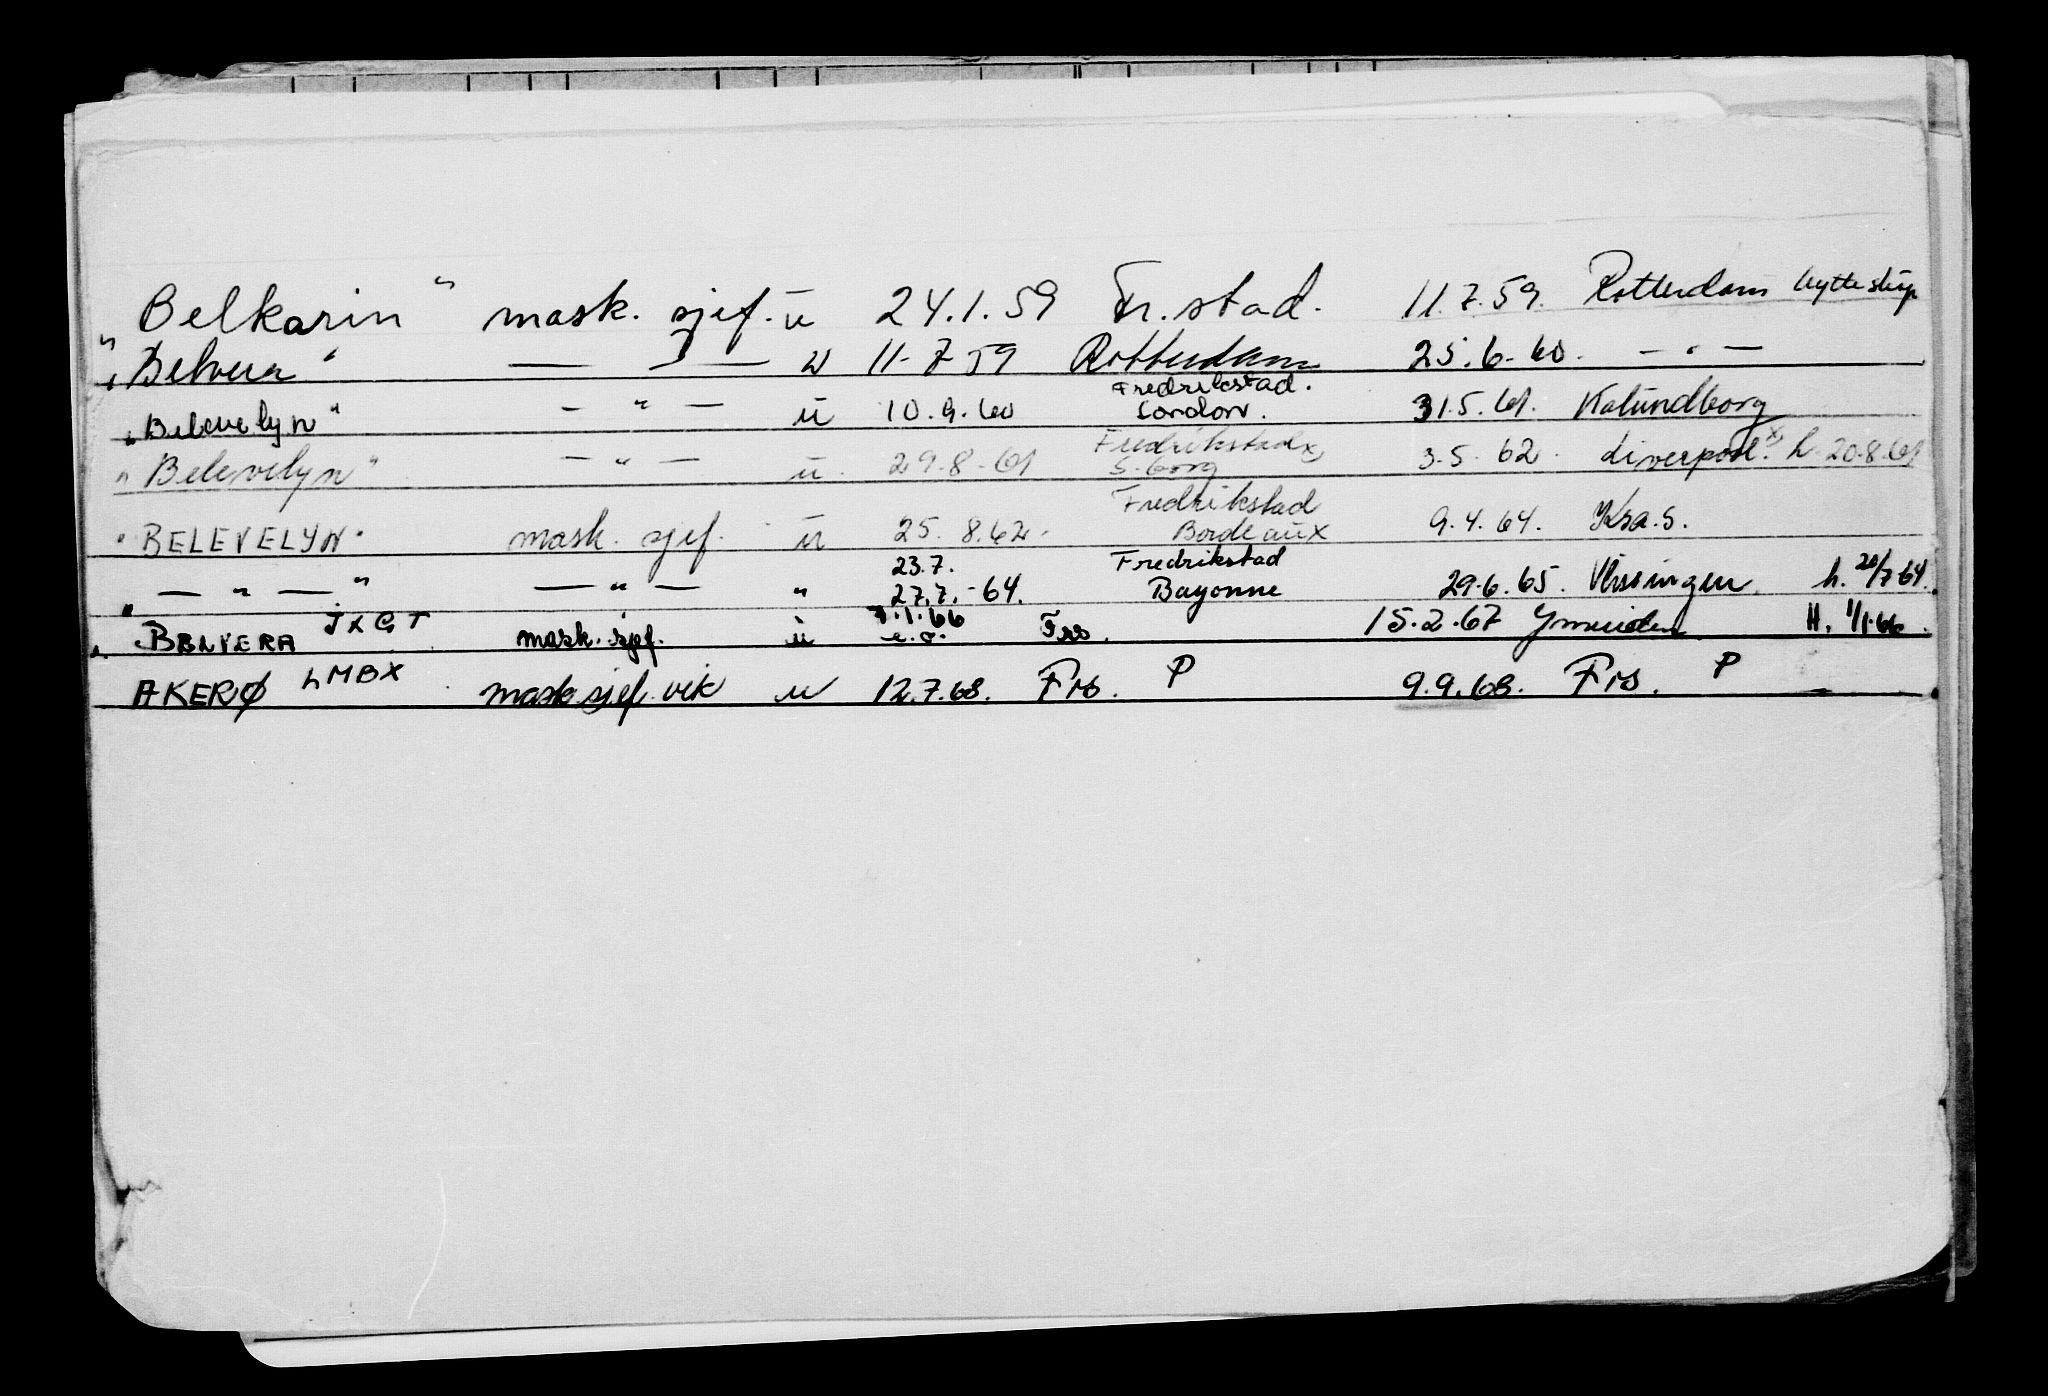 "Belkarin" mask. sjef. u 24.1.59 Fr.stad. 11.7.59. Rotterdam bytte skip
"Belvera" — " — u 11-7 59 Rotterdam 25.6-60. — " —
"Belevelyn" — " — u 10.9.60 Fredrikstad. London. 31.5.61. Kalundborg
"Belevelyn" — " — u. 29.8-61 Fredrikstad x S.borg 3.5.62. Liverpool. x) h. 20.8.61
"BELEVELYN" mask. sjef. u 25.8.62. Fredrikstad Bordeaux 9.4.64. Kra.S.
— " — " — " — " 23.7. 27.7.-64. Fredrikstad Bayonne 29.6.65. Vlissingen. h. 20/7 64.
"BELVERA JXGT mask. sjef. u 7.1.66 e.o. Frs. 15.2.67 Ymuiden. H. 1/1.66.
AKERØ LMBX mask sjef. vik u 12.7.68. Frs. P 9.9.68. Frs. P —